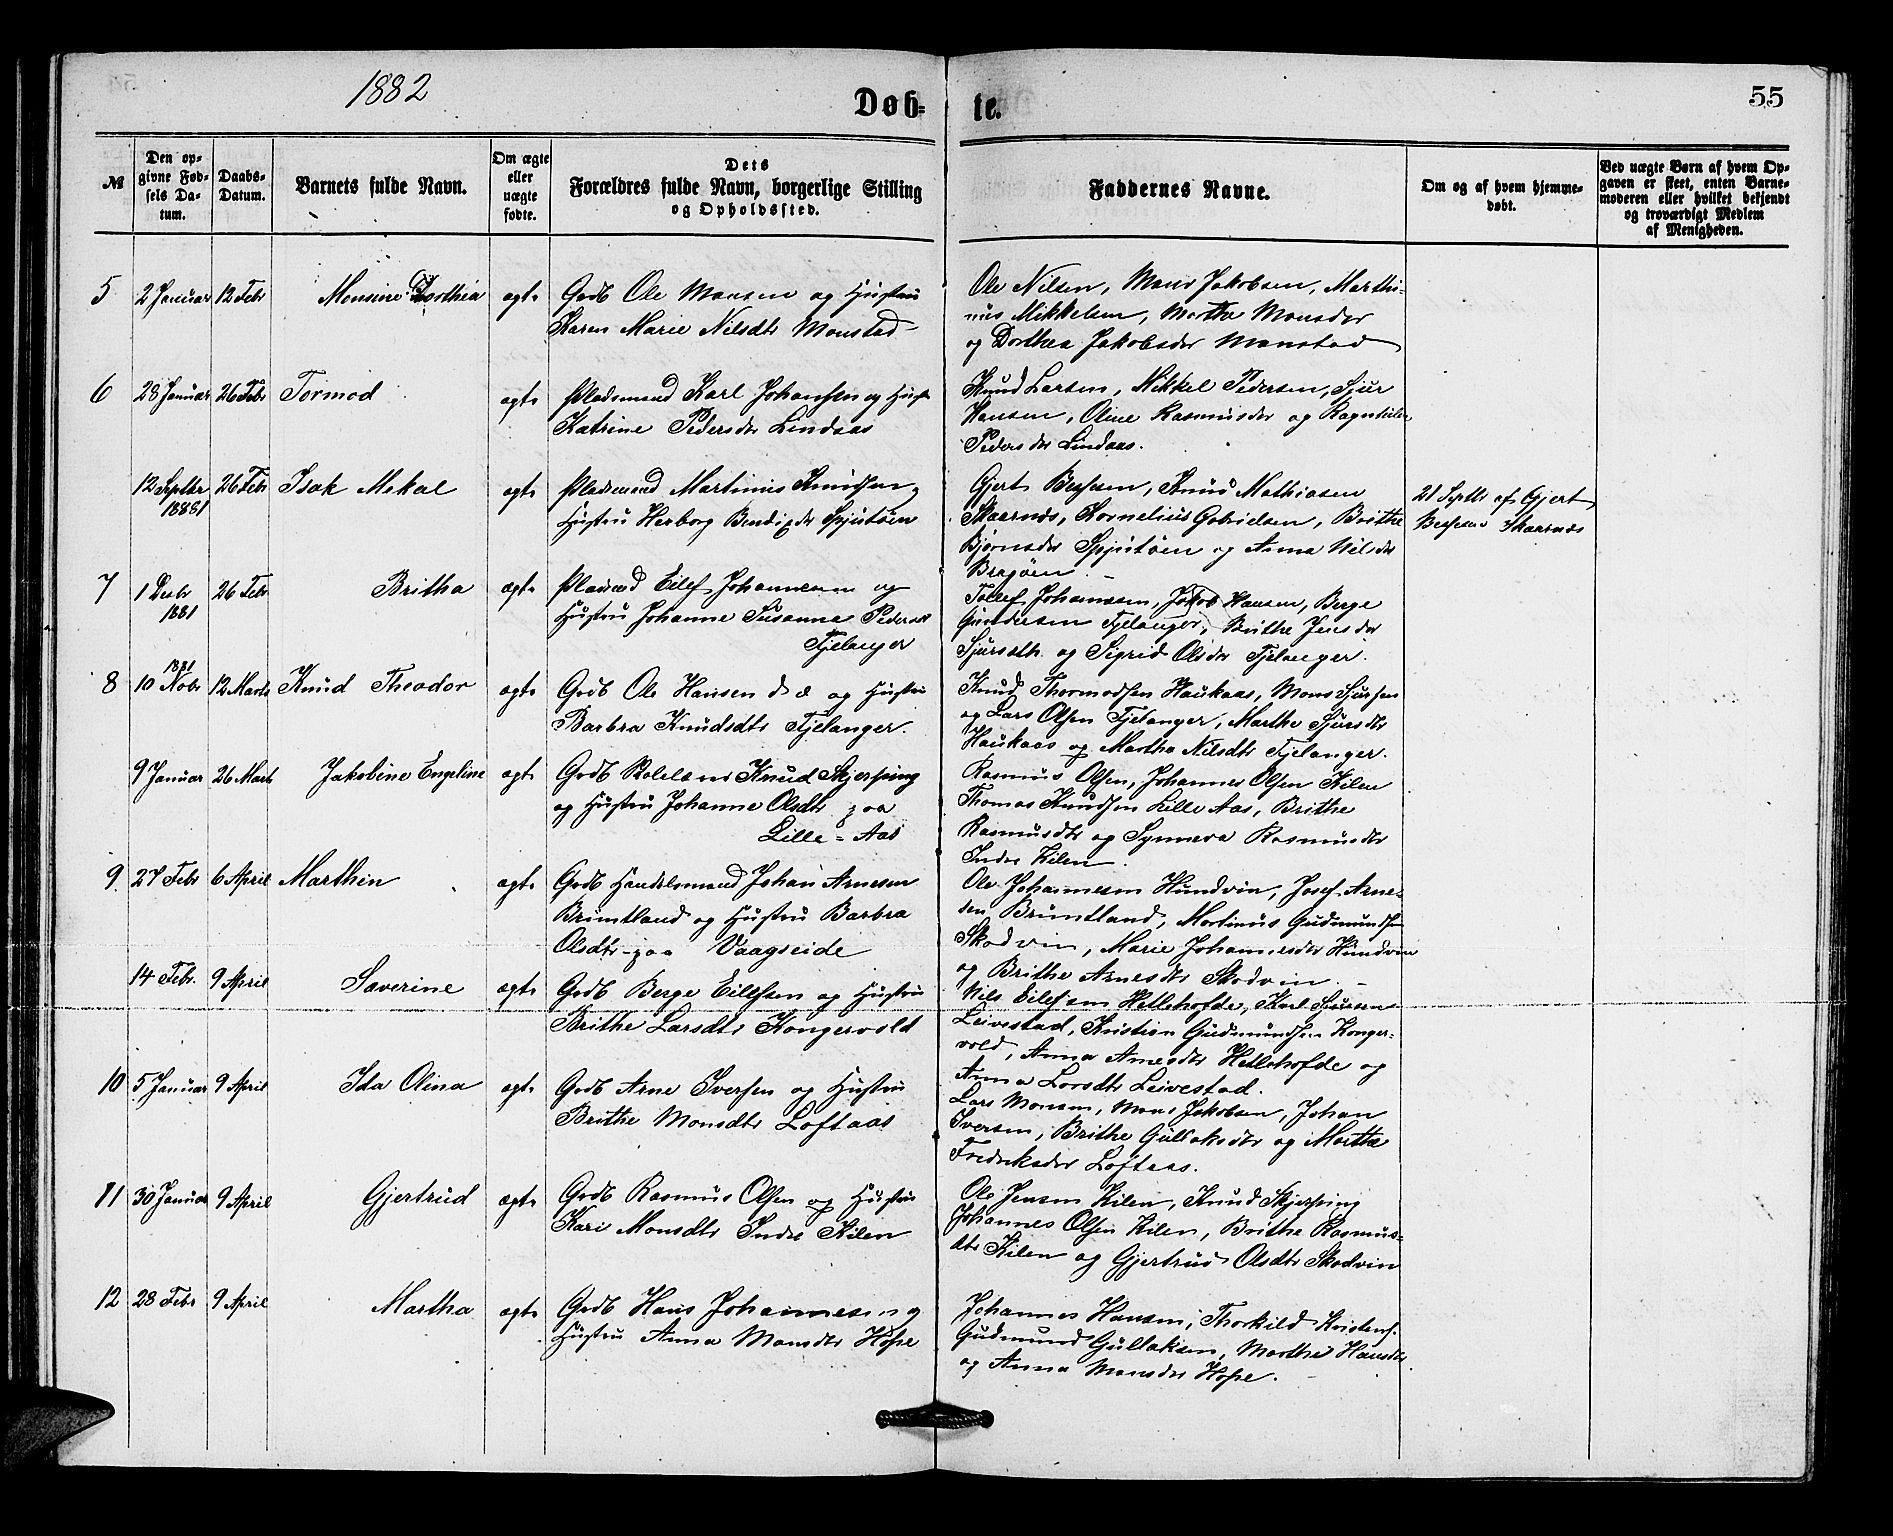 1882
Døb- te.
55
№
Den opgivne Fødsels Datum.
Daabs-Datum.
Barnets fulde Navn.
Om ægte eller uægte fødte.
Dets Forældres fulde Navn, borgerlige Stilling og Opholdssted.
Faddernes Navne.
Om og af hvem hjemmedøbt.
Ved uægte Børn af hvem Opgaven er skeet, enten Barnemoderen eller hvilket bekjendt og troværdigt Medlem af Menigheden.
5 2 Januar 12 Febr Monsine Dorthea ægte
Grdb Ole Monsen og Hustru
Karen Marie Nilsdtr Monstad
Ole Nilsen, Mons Jakobsen, Marthi-
nus Mikkelsen, Marthe Monsdtr
og Dorthea Jakobsdtr Monstad
6 28 Januar 26 Febr Tormod ægte
Pladsmand Karl Johansen og Hust
Katrine Pedersdtr Lindaas
Knud Larsen, Mikkel Pedersen, Sjur
Hansen, Oline Rasmusdtr og Ragnhilde
Pedersdtr Lindaas.
12 Septbr 1881 26 Febr Isak Mekal ægte
Pladsmand Martinus Knudsen og
Hustru Herborg Bendixdtr Spjutøen
Gjert Bessesen, Knud Mathiasen
Skaarnæs, Kornelius Gabrielsen, Brithe
Bjørnsdtr Spjutøen og Anna Nilsdtr
21 Septbr af Gjert
Bessesen Skaarnæs
7 1 Decbr 1881 26 Febr Britha ægte
Pladsmd Eilef Johannesen og
Hustru Johanne Susanna Pedersdtr
Fjelanger
Tollef Johannsen, Jakob Hansen, Berge
Gundersen Fjelanger, Brithe Jensdtr
og Sigrid Olsdtr Fjelanger.
8 1881 10 Novbr 12 Marts Knud Theodor ægte
Grdb Ole Hansen d. æ og Hustru
Barbra Knudsdtr Fjelanger.
Knud Thormodsen Haukaas, Mons Sjursen
og Lars Olsen Fjelanger, Marthe Sjursdtr
Haukaas og Martha Nilsdtr Fjelanger.
9 Januar 26 Marts Jakobine Engeline ægte
Grdb Knud Skjerping
og Hustru Johanne Olsdtr paa
Lille-Aas
Rasmus Olsen, Johannes Olsen Kilen
Thomas Knudsen Lille Aas, Brithe
Rasmusdtr og Synneva Rasmusdtr
Indre Kilen.
9. 27 Febr 6 April Marthin ægte
Grdb Handelsmand Johan Arnesen
Bruntland og Hustru Barbra
Olsdtr paa Vaagseide
Ole Johannesen Hundvin, Josef Arne-
sen Bruntland, Martinus Gudmundsen
Skodvin, Marie Johannesdtr Hundvin
og Brithe Arnesdtr Skodvin.
14 Febr. 9 April Saverine ægte
Grdb Berge Eilefsen og Hustru
Brithe Larsdtr Kongevold
Nils Eilefsen Hetlehofde, Karl Sjursen
Leivestad, Kristian Gudmundsen Konger-
vold, Anna Arnesdtr Hetlehofde og
Anna Larsdtr Leivestad.
10 5 Januar 9 April Ida Olina ægte
Grdb Arne Iversen og Hustru
Brithe Monsdtr Loftaas
Lars Monsen, Mons Jakobsen, Johan
Iversen, Brithe Gullaksdtr og Marthe
Fredriksdtr Loftaas.
11 30 Januar 9 April Gjertrud ægte
Grdb Rasmus Olsen og Hustru
Kari Monsdtr Indre Kilen
Ole Jensen Kilen, Knud Skjerping
Johannes Olsen Kilen, Brithe Rasmus-
dtr Kilen og Gjertrud Olsdtr Skodvin
12 28 Febr 9 April Martha ægte
Grdb Hans Johannesen og
Hustru Anna Monsdtr Hope
Johannes Hansen, Thorkild Kristens.
Gudmund Gullaksen, Marthe Hansdtr
og Anna Monsdtr Hope.